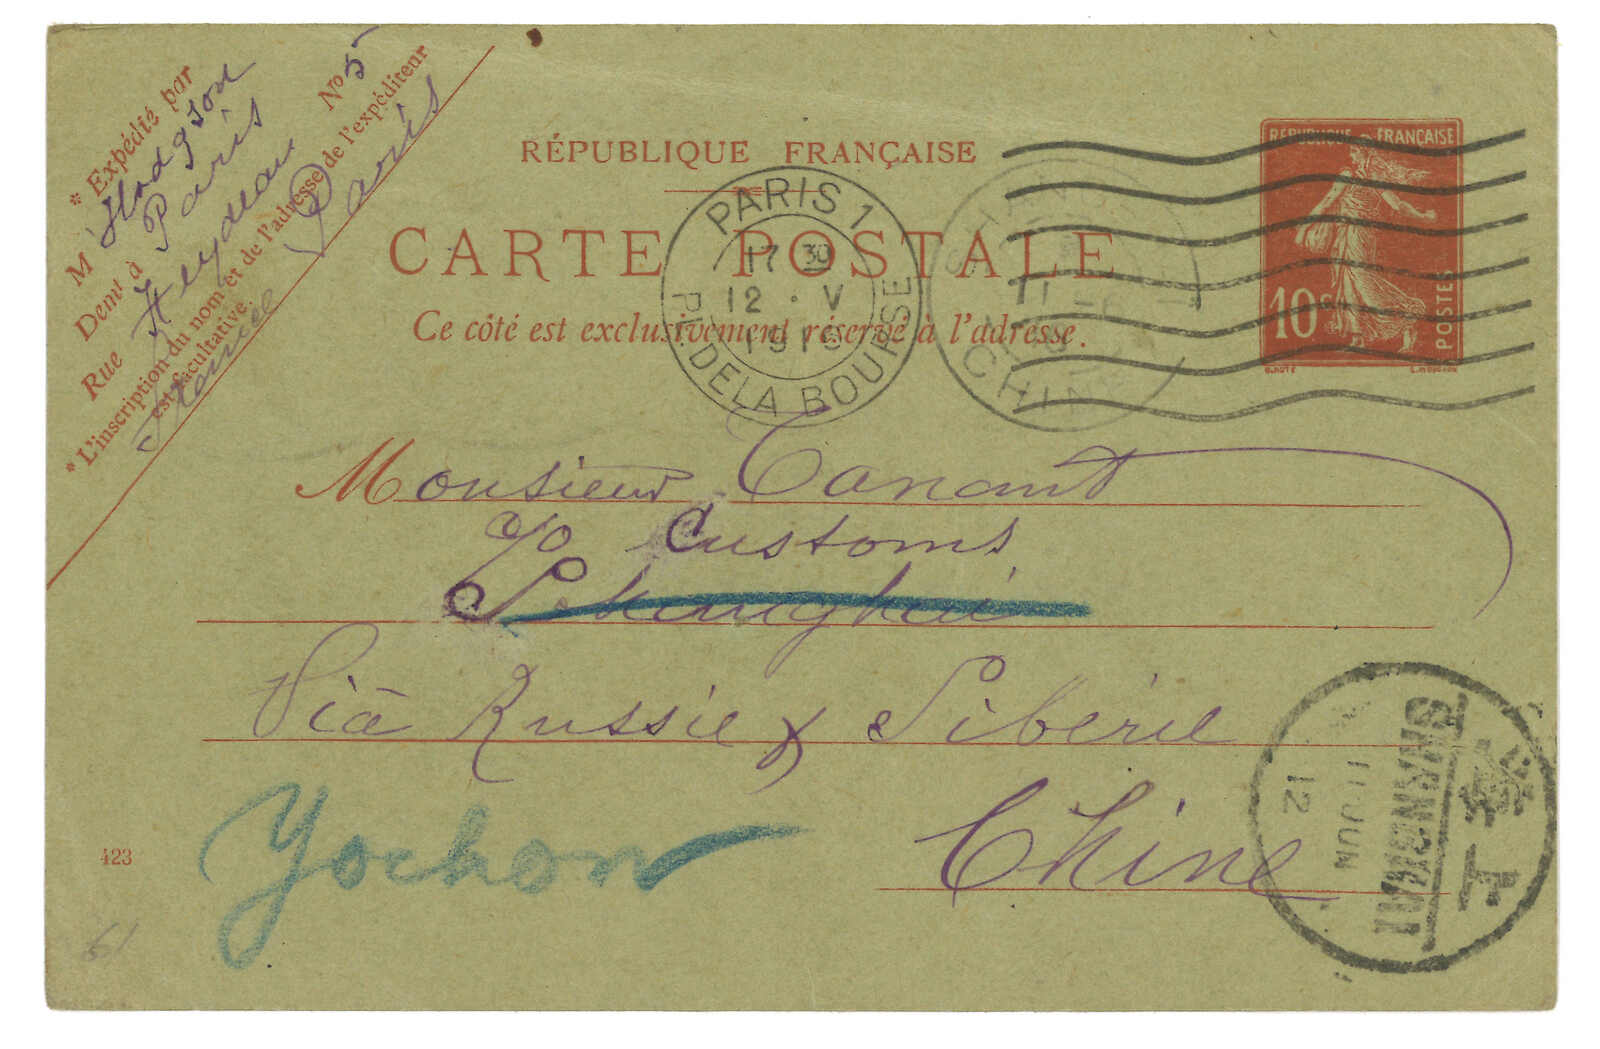 * Expédié par
M Hodgson
Demt à Paris
Rue Heydeau No 5
* L'inscription du nom et de l'adresse de l'expéditeur
est facultative.
Paris
RÉPUBLIQUE FRANÇAISE
CARTE POSTALE
Ce côté est exclusivement réservé à l'adresse.
PARIS 1
17 30
12 · V
PL. DE LA BOURSE
CHINE
RÉPUBLIQUE FRANÇAISE
10c
POSTES
Monsieur Tanant
Customs
Shanghai
Viâ Russie & Sibérie
Chine
Yochow
423
61
SHANGHAI
11 JUN
12
上海